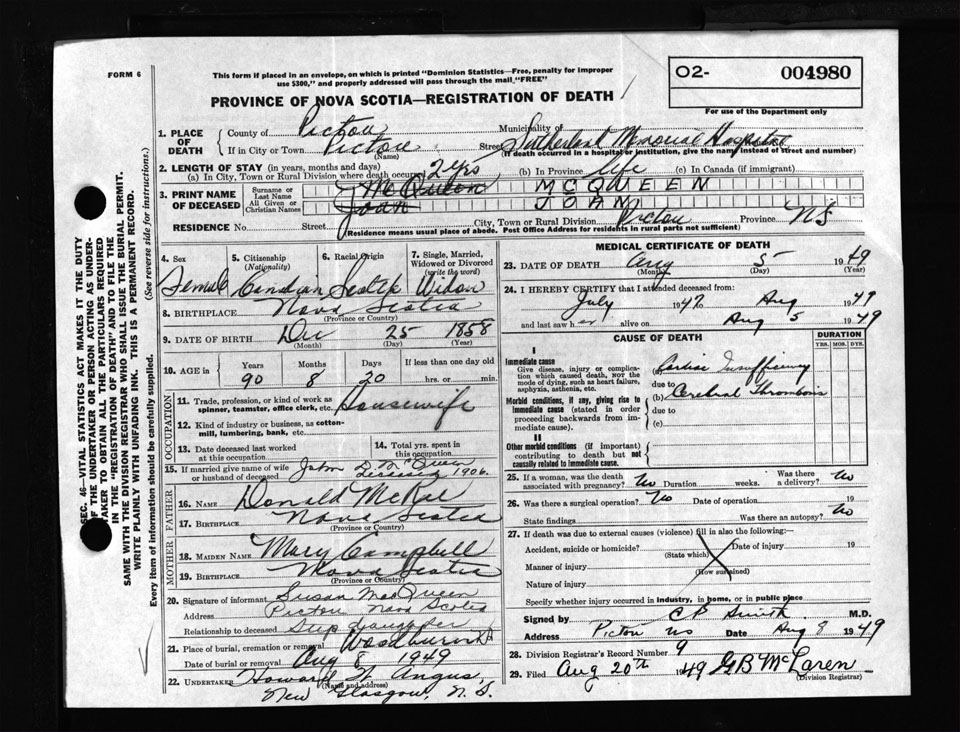 FORM 6
This form if placed in an envelope, on which is printed "Dominion Statistics—Free, penalty for improper
use $300," and properly addressed will pass through the mail "FREE"
O2- 004980
For use of the Department only
PROVINCE OF NOVA SCOTIA—REGISTRATION OF DEATH
1. PLACE OF DEATH
County of Pictou Municipality of
If in City or Town Pictou (Name) Street Sutherland Memorial Hospital
(If death occurred in a hospital or institution, give the name instead of street and number)
2. LENGTH OF STAY (in years, months and days)
(a) In City, Town or Rural Division where death occurred 2 yrs (b) In Province life (c) In Canada (if immigrant)
3. PRINT NAME OF DECEASED
Surname or Last Name McQueen MCQUEEN
All Given or Christian Names Joan JOAN
RESIDENCE No. Street City, Town or Rural Division Pictou Province N.S
(Residence means usual place of abode. Post Office Address for residents in rural parts not sufficient)
4. Sex Female
5. Citizenship (Nationality) Canadian
6. Racial Origin Scotch
7. Single, Married, Widowed or Divorced (write the word) Widow
8. BIRTHPLACE Nova Scotia
(Province or Country)
9. DATE OF BIRTH Dec 25 1858
(Month) (Day) (Year)
10. AGE in Years Months Days If less than one day old
90 8 20 hrs. or min.
OCCUPATION
11. Trade, profession, or kind of work as spinner, teamster, office clerk, etc. Housewife
12. Kind of industry or business, as cotton-mill, lumbering, bank, etc.
13. Date deceased last worked at this occupation
14. Total yrs. spent in this occupation
15. If married give name of wife or husband of deceased John D. McQueen
1906.
FATHER
16. NAME Donald McRae
17. BIRTHPLACE Nova Scotia
(Province or Country)
MOTHER
18. MAIDEN NAME Mary Campbell
19. BIRTHPLACE Nova Scotia
(Province or Country)
20. Signature of informant Susan MacQueen
Address Pictou Nova Scotia
Relationship to deceased Step daughter
21. Place of burial, cremation or removal
Date of burial or removal Aug 8 1949
22. UNDERTAKER Howard W Angus,
(Name and address)
New Glasgow, N. S.
MEDICAL CERTIFICATE OF DEATH
23. DATE OF DEATH Aug 5 1949
(Month) (Day) (Year)
24. I HEREBY CERTIFY that I attended deceased from:
July 1947 to Aug 1949
and last saw her alive on Aug 5 1949
CAUSE OF DEATH
DURATION
YRS. MOS. DYS.
I
Immediate cause
Give disease, injury or complication which caused death, not the mode of dying, such as heart failure, asphyxia, asthenia, etc.
(a) Cardiac Insufficiency
due to
Morbid conditions, if any, giving rise to immediate cause (stated in order proceeding backwards from immediate cause).
(b) Cerebral Thrombosis
due to
(c)
II
Other morbid conditions (if important) contributing to death but not causally related to immediate cause.
25. If a woman, was the death associated with pregnancy? No Duration weeks. Was there a delivery? No
26. Was there a surgical operation? No Date of operation 19
State findings Was there an autopsy? No
27. If death was due to external causes (violence) fill in also the following:—
Accident, suicide or homicide? (State which) Date of injury 19
Manner of injury
(How sustained)
Nature of injury
Specify whether injury occurred in industry, in home, or in public place
Signed by C P Smith M.D.
Address Pictou NS Date Aug 8 1949
28. Division Registrar's Record Number 9
29. Filed Aug 20th 1949 GB McLaren
(Division Registrar)
SEC. 46—VITAL STATISTICS ACT MAKES IT THE DUTY
OF THE UNDERTAKER OR PERSON ACTING AS UNDER-
TAKER TO OBTAIN ALL THE PARTICULARS REQUIRED
IN THE "REGISTRATION OF DEATH" AND TO FILE THE
SAME WITH THE DIVISION REGISTRAR WHO SHALL ISSUE THE BURIAL PERMIT.
WRITE PLAINLY WITH UNFADING INK. THIS IS A PERMANENT RECORD.
Every item of information should be carefully supplied. (See reverse side for instructions.)